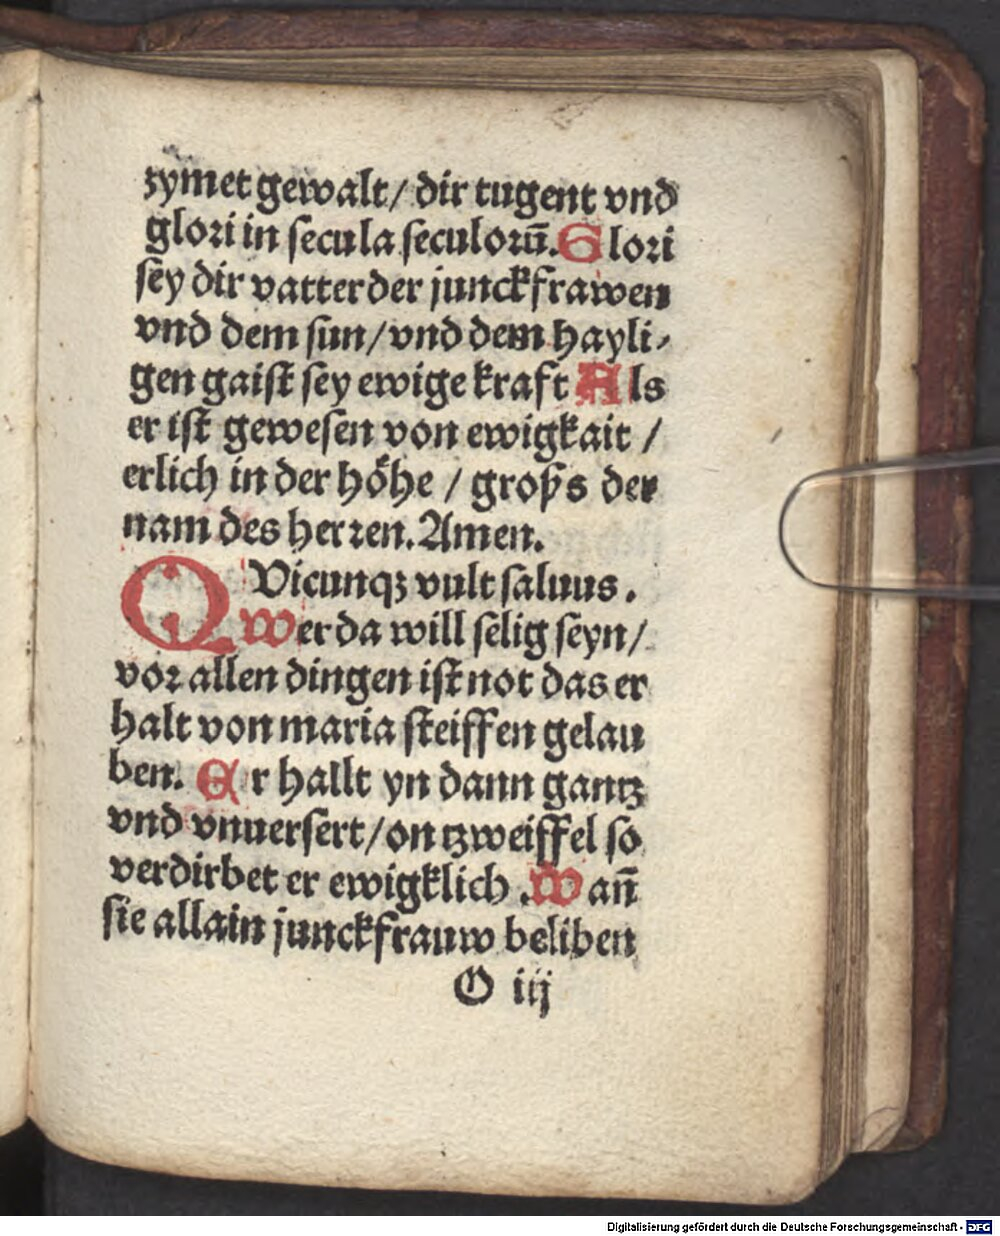 zymet gewalt/ dir tugent vnd
glori in secula seculorū. Glori
sey dir vatter der junckfrawen
vnd dem sun/ vnd dem hayli-
gen gaist sey ewige kraft Als
er ist gewesen von ewigkait /
erlich in der höhe / groß's der
nam des herren. Amen.
QVicunqꝫ vult saluus.
Wer da will selig seyn/
vor allen dingen ist not das er
halt von maria steiffen gelau
ben. Er hallt yn dann gantz
vnd vnuersert/ on tzweiffel so
verdirbet er ewigklich. Wañ
sie allain junckfrauw beliben
O iij
Digitalisierung gefördert durch die Deutsche Forschungsgemeinschaft - DFG